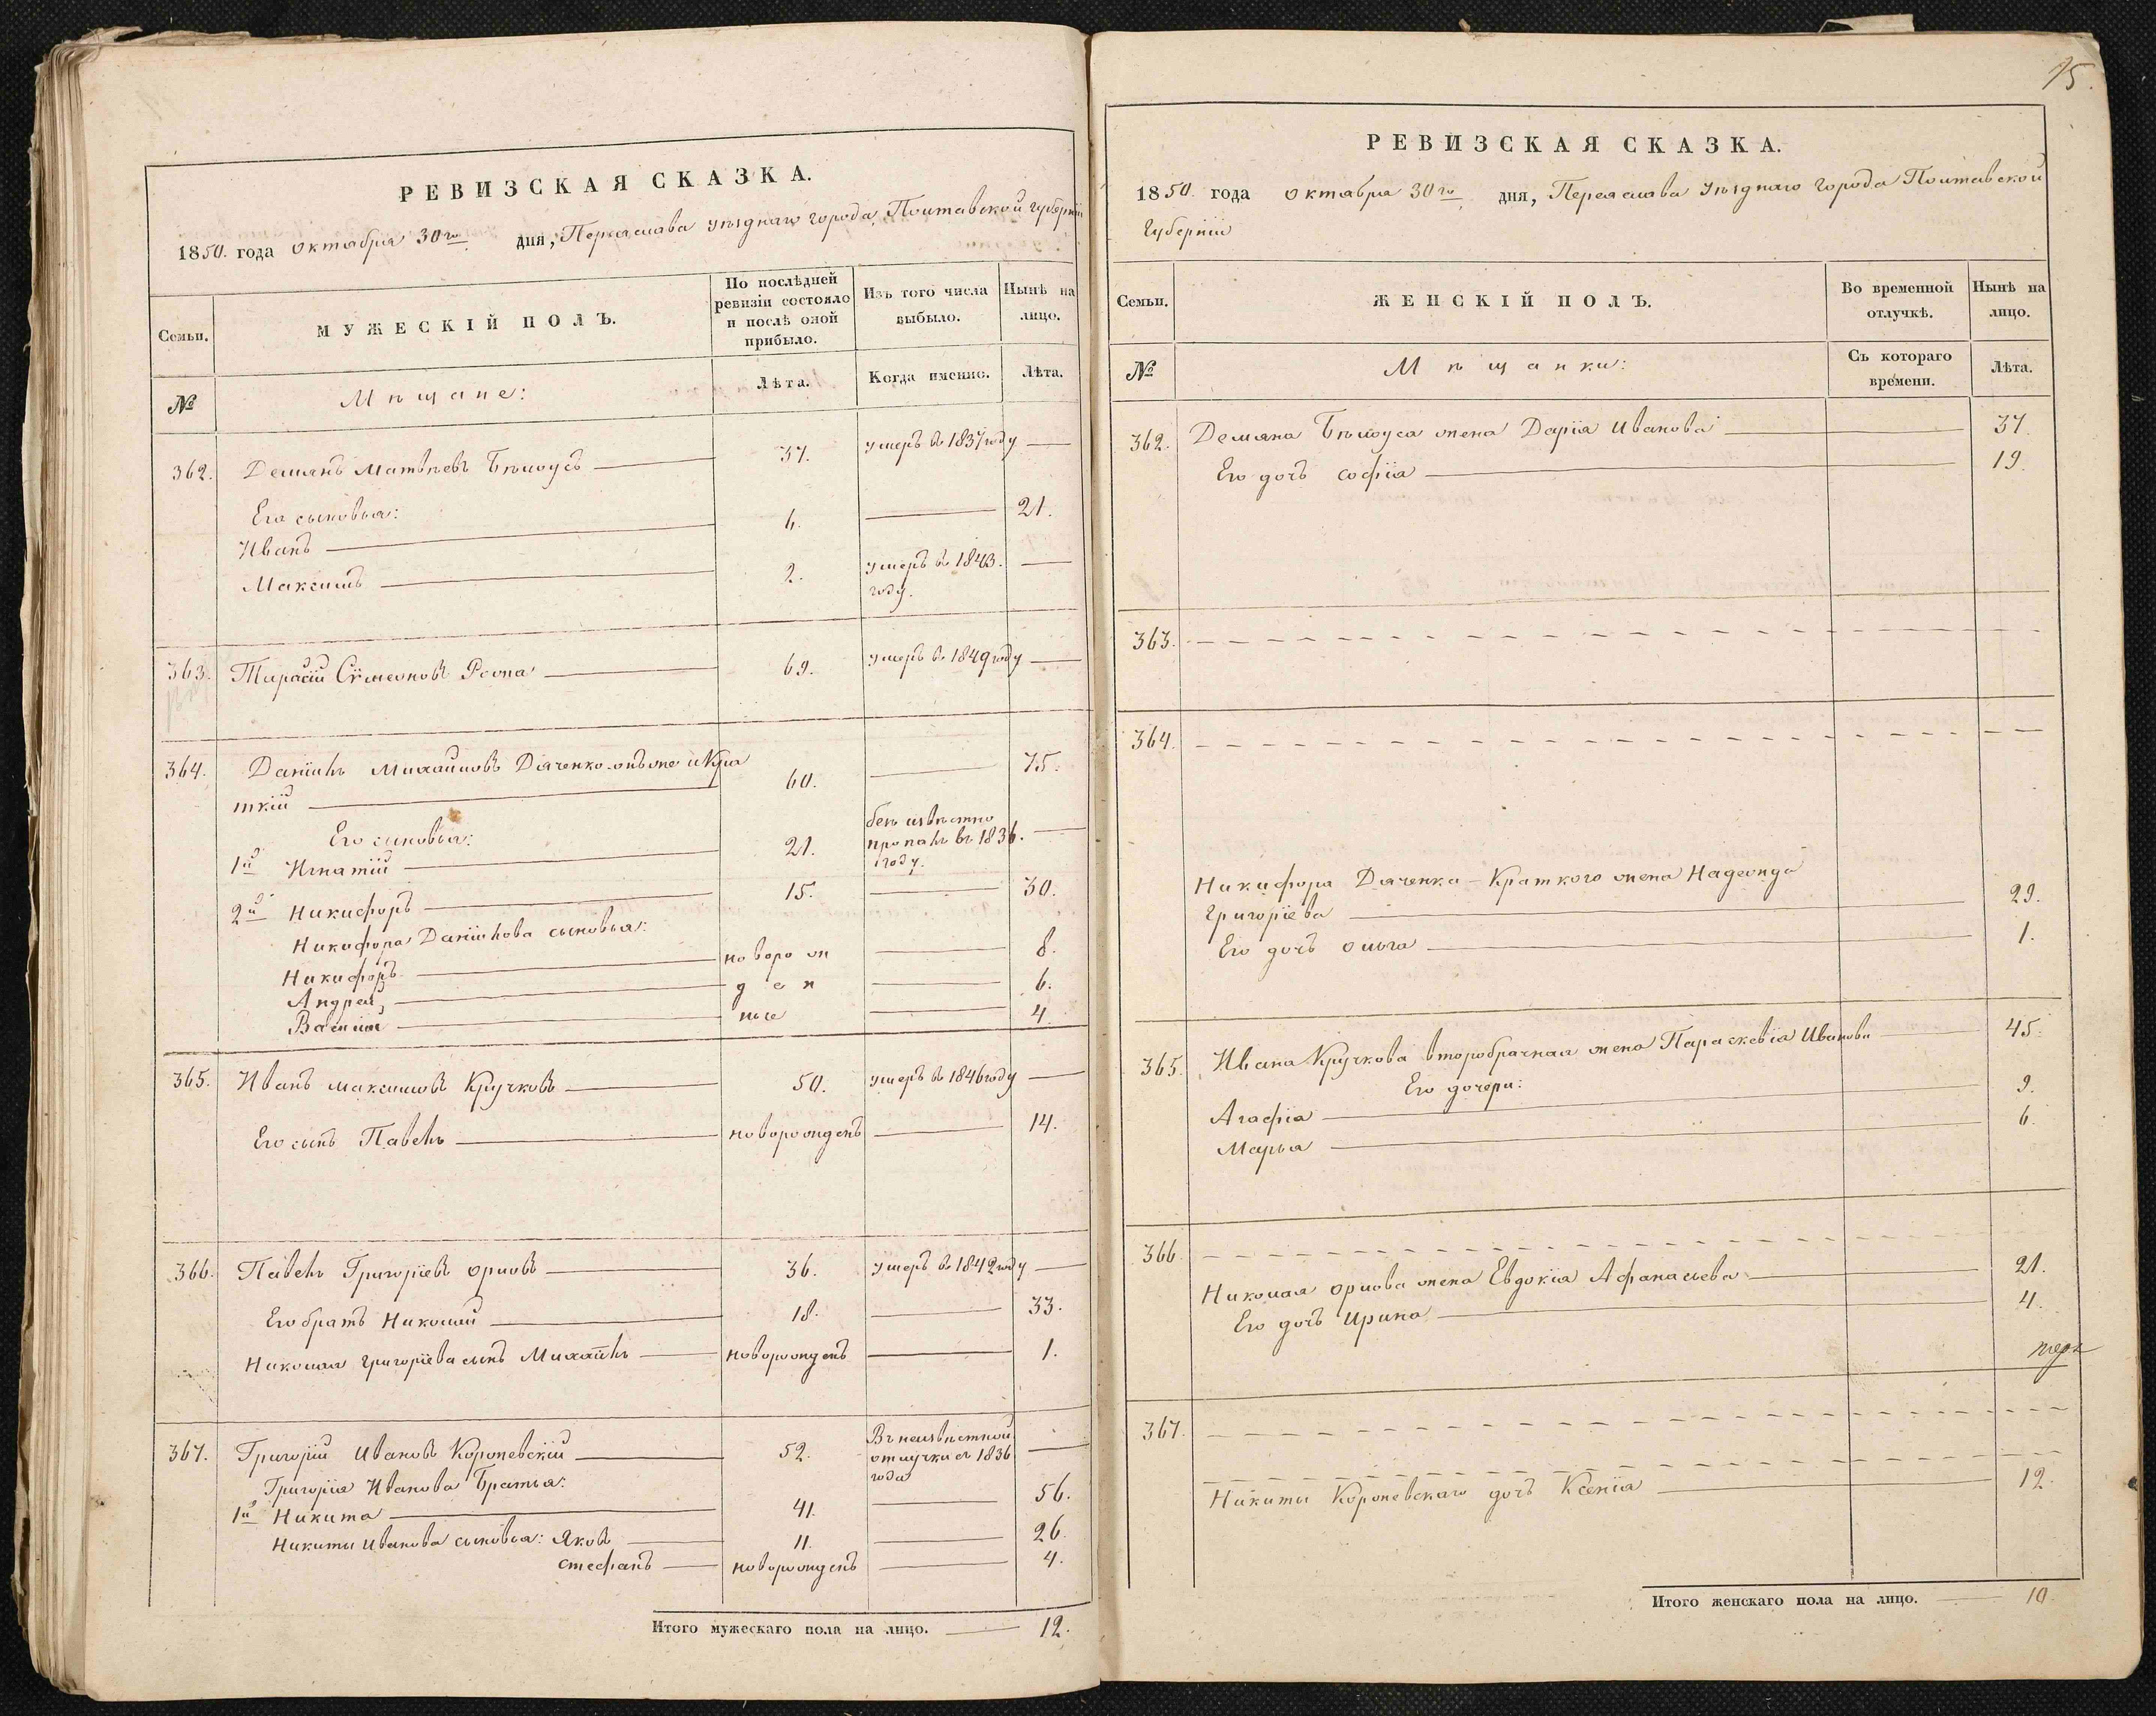 РЕВИЗСКАЯ СКАЗКА.
1850. года октября 30го дня, Переяслава уѣзднаго города Полтавской губерніи
Семьи. МУЖЕСКІЙ ПОЛЪ. По послѣдней ревизіи состояло и послѣ оной прибыло. Изъ того числа выбыло. Нынѣ на лицо.
№ Мѣщане: Лѣта. Когда именно. Лѣта.
362. Демянъ Матвѣевъ Бѣлоусъ 37. умеръ въ 1837 году
Его сыновья:
Иванъ 6. 21.
Максимъ 2. умеръ въ 1843.
году.
363. Тарасій Сѵмеоновъ 69. умеръ въ 1849 году
364. Даніилъ Михайловъ Дяченко онъ же и Кра
ткій 60. 75.
Его сыновья:
1й Игнатій 21. безъ извѣстно
пропалъ въ 1836.
году.
2й Никифоръ 15. 30.
Никифора Данілова сыновья:
Никифоръ новорож 8.
Андрей ден 6.
Василій ные 4.
365. Иванъ Максимовъ Кручковъ 50. умеръ въ 1846 году
Его сынъ Павелъ новорожденъ 14.
366. Павелъ Григоріевъ Орловъ 36. умеръ въ 1842 году
Его братъ Николай 18. 33.
Николая Григоріева сынъ Михаилъ новорожденъ 1.
367. Григорій Ивановъ Королевскій 52. Въ неизвѣстной
отлучки съ 1836
года
Григорія Иванова Братья:
1й Никита 41. 56.
Никиты Иванова сыновья: Яковъ 11. 26.
Стефанъ новорожденъ 4.
Итого мужескаго пола на лицо. 12.
15.
РЕВИЗСКАЯ СКАЗКА.
1850. года октября 30го дня, Переяслава уѣзднаго города Полтавской
Губерніи
Семьи. ЖЕНСКІЙ ПОЛЪ. Во временной отлучкѣ. Нынѣ на лицо.
№ Мѣщанки: Съ котораго времени. Лѣта.
362. Демяна Бѣлоуса жена Дарія Иванова 37.
Его дочь Софія 19.
363.
364.
Никифора Дяченка-Краткого жена Надежда
Григоріева 29.
Его дочь Ольга 1.
365. Ивана Кручкова второбрачная жена Параскевія Иванова 45.
Его дочери:
Агафія 9.
Марья 6.
366.
Николая Орлова жена Евдокія Афанасьева 21.
Его дочь Ирина 4.
367.
Никиты Королевскаго дочь Ксенія 12.
Итого женскаго пола на лицо. 10